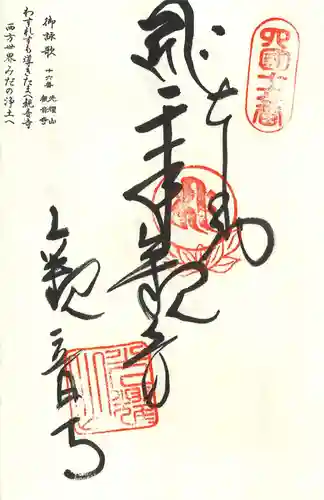 四国十六番
奉納
千手観音
観音寺
御詠歌
十六番 光耀山
観音寺
わすれずも導きたまへ観音寺
西方世界みだの浄土へ